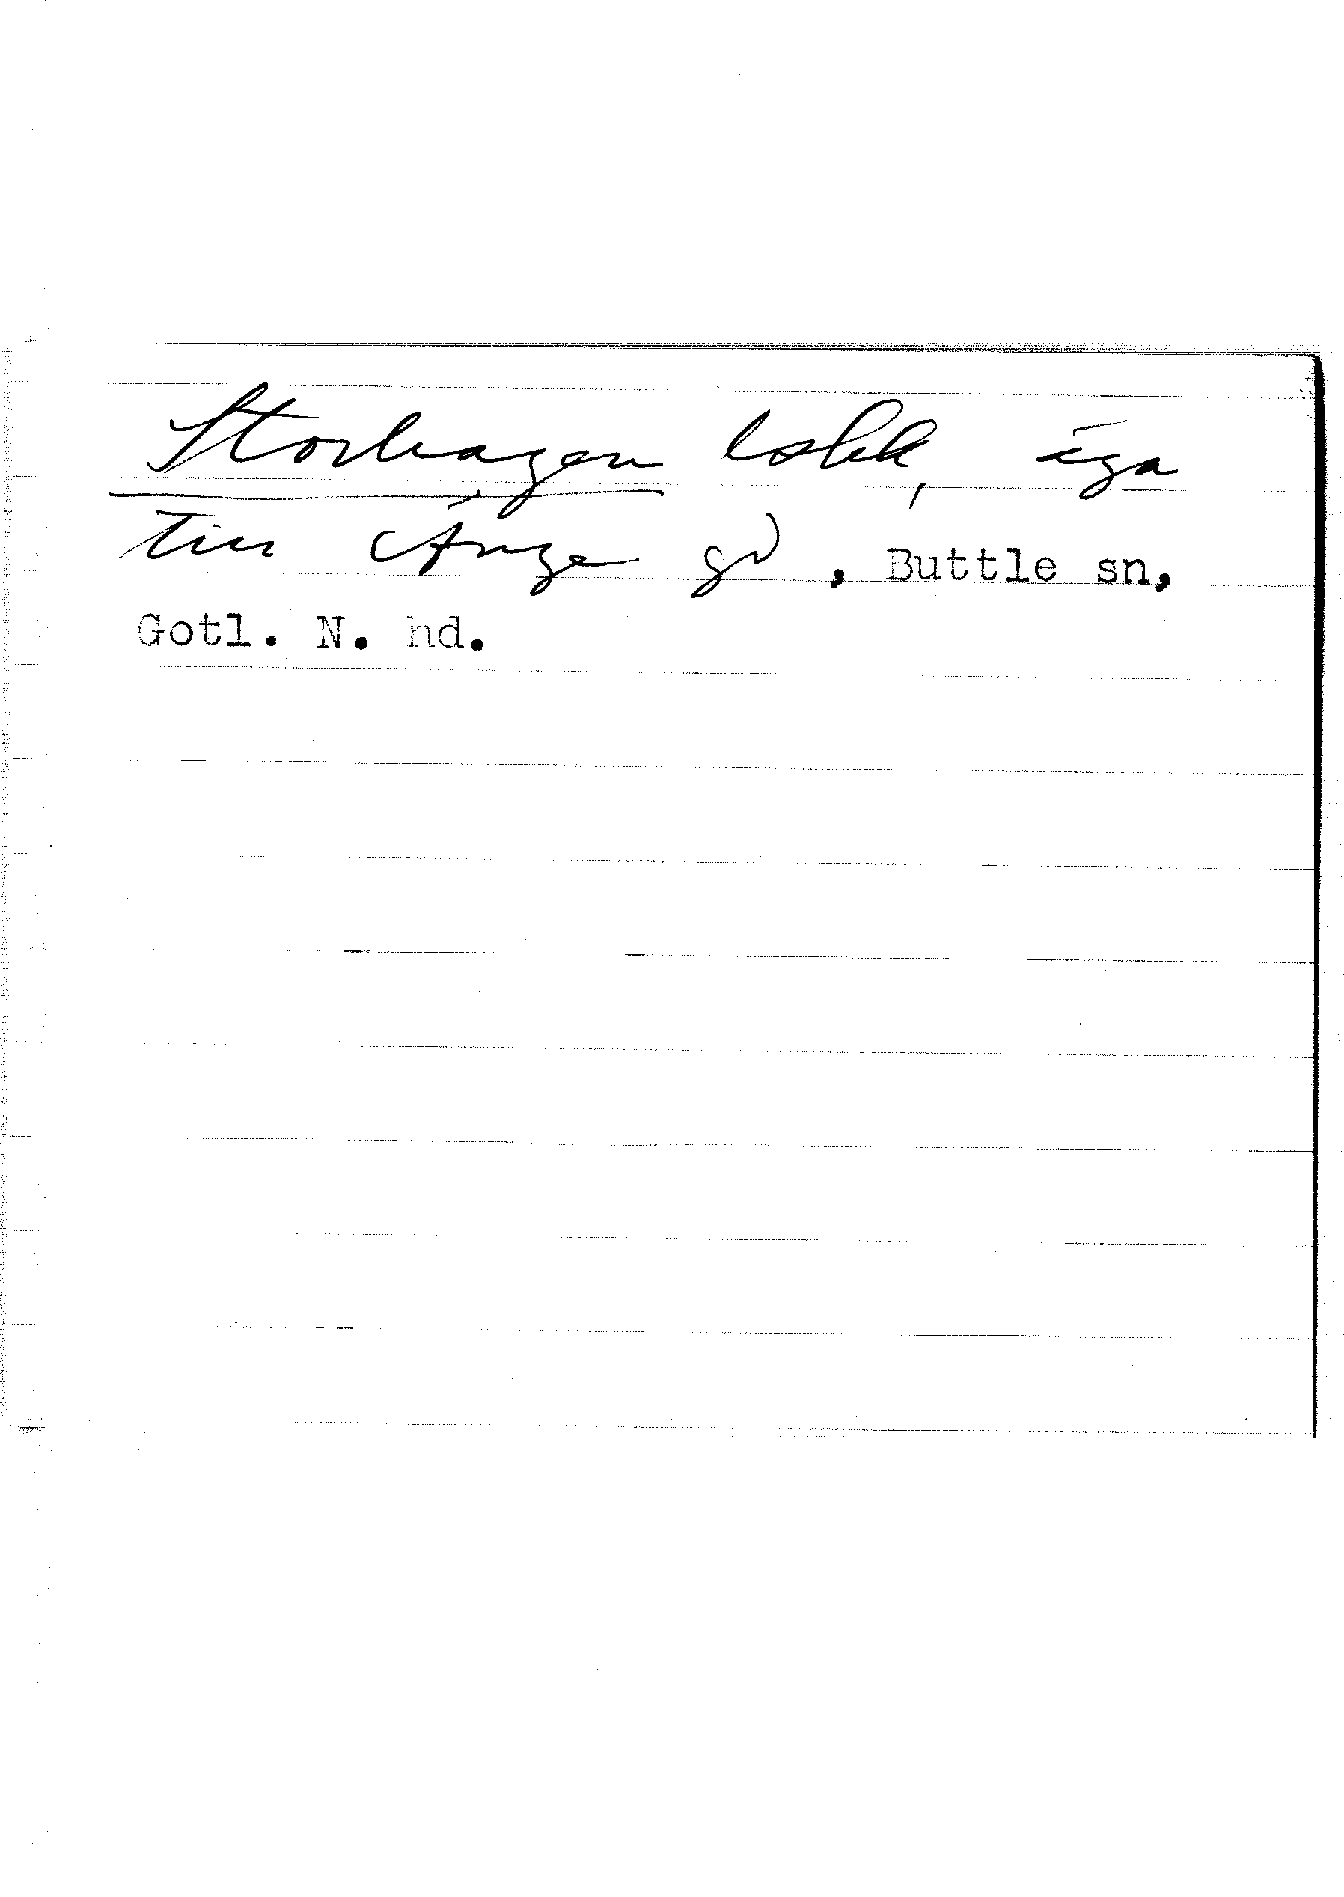 Storhagen lokk, äga
till Änge gd, Buttle sn,
Gotl. N. hd.